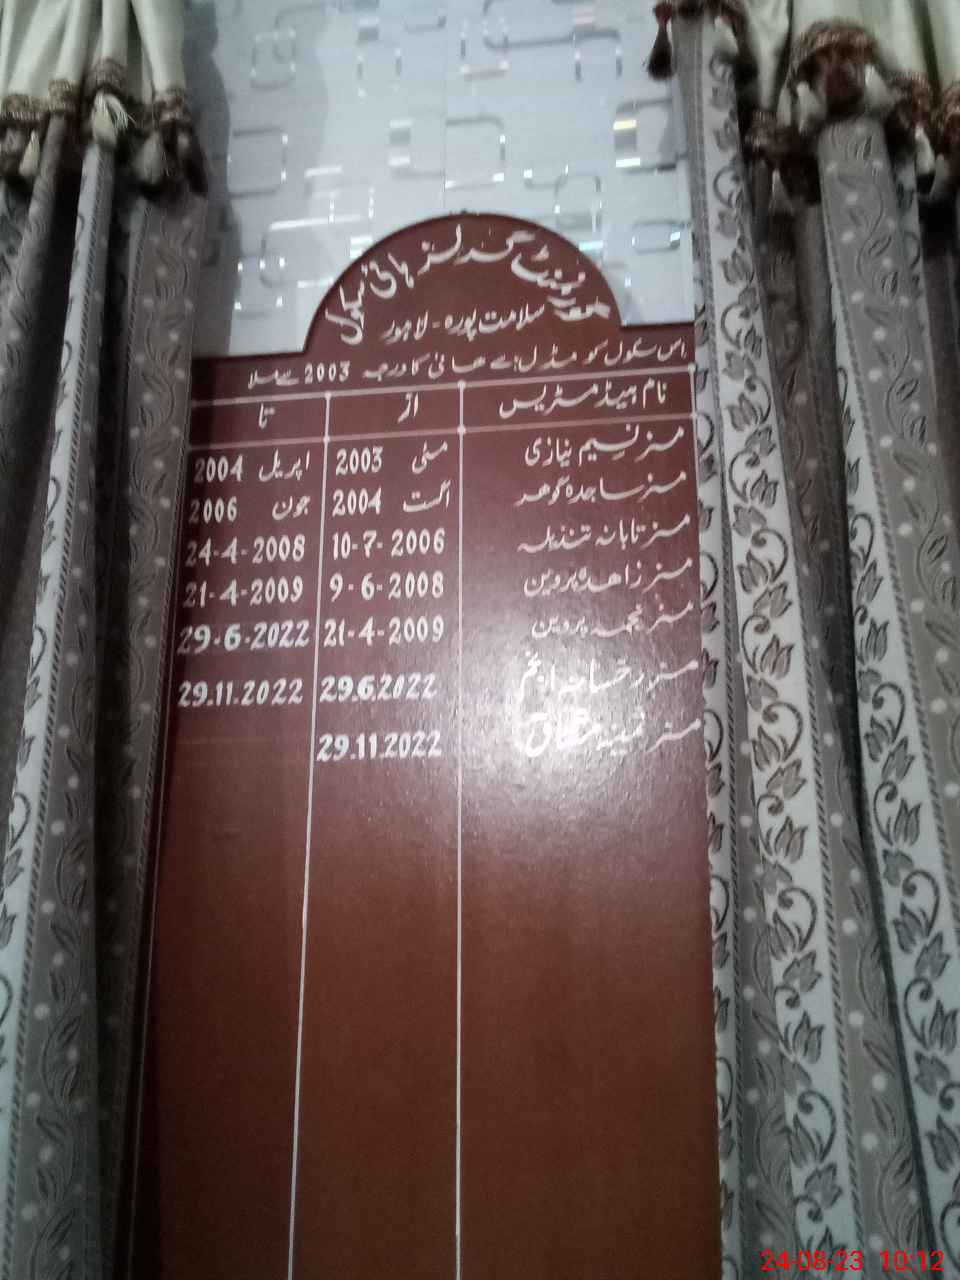 گورنمنٹ گرلز ہائی سکول
سلامت پورہ - لاہور
اس سکول کو مڈل سے ھائی کا درجہ 2003 سے ملا
نام ہیڈ مسٹریس از تا
مسز نسیم نیازی مئی 2003 اپریل 2004
مسز ساجدہ گوھر اگست 2004 جون 2006
مسز تابانہ 10-7-2006 24-4-2008
مسز زاھدہ پروین 9-6-2008 21-4-2009
مسز نجمہ پروین 21-4-2009 29-6-2022
مسز رخسانہ انجم 29.6.2022 29.11.2022
مسز ثمینہ 29.11.2022
24-08-23 10:12